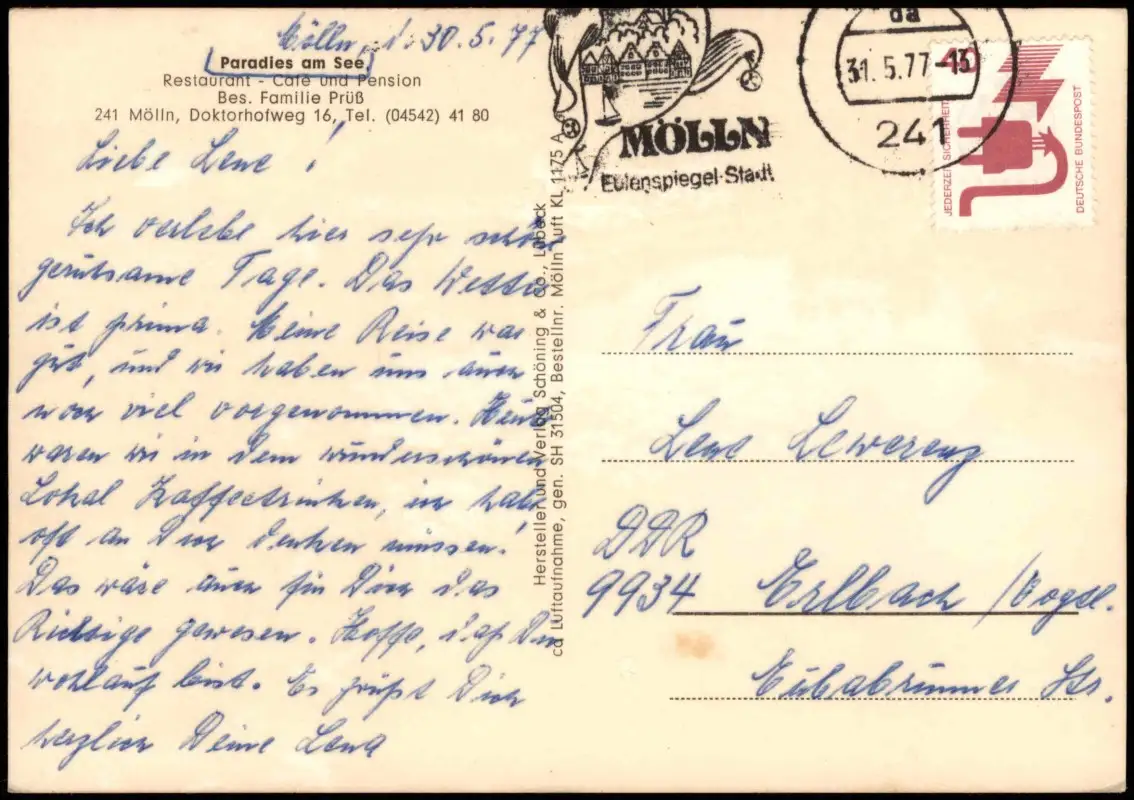 Mölln, d. 30.5.77
Paradies am See
Restaurant - Café und Pension
Bes. Familie Prüß
241 Mölln, Doktorhofweg 16, Tel. (04542) 41 80
Liebe Lene!
Ich verlebe hier sehr schöne
geruhsame Tage. Das Wetter
ist prima. Meine Reise war
gut, und wir haben uns auch
noch viel vorgenommen. Heute
waren wir in dem wunderschönen
Lokal Kaffeetrinken, ich habe
oft an Dich denken müssen.
Das wäre auch für Dich das
Richtige gewesen. Hoffe, daß Du
wohlauf bist. Es grüßt Dich
herzlich Deine Lena
Herstellen und Verlag Schöning & Co., Lübeck
ca Luftaufnahme, gen. SH 31504, Bestellnr. Mölln Luft KL 1175 A
MÖLLN
Eulenspiegel-Stadt
da
31.5.77-13
241
40
JEDERZEIT SICHERHEIT
DEUTSCHE BUNDESPOST
Frau
Lene Lewerenz
DDR
9934 Erlbach /Vogtl.
Eubabrunner Str.